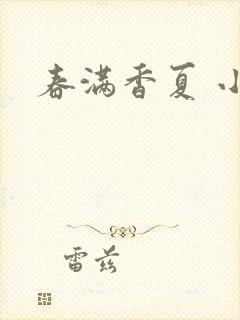 春满香夏 小
雷兹